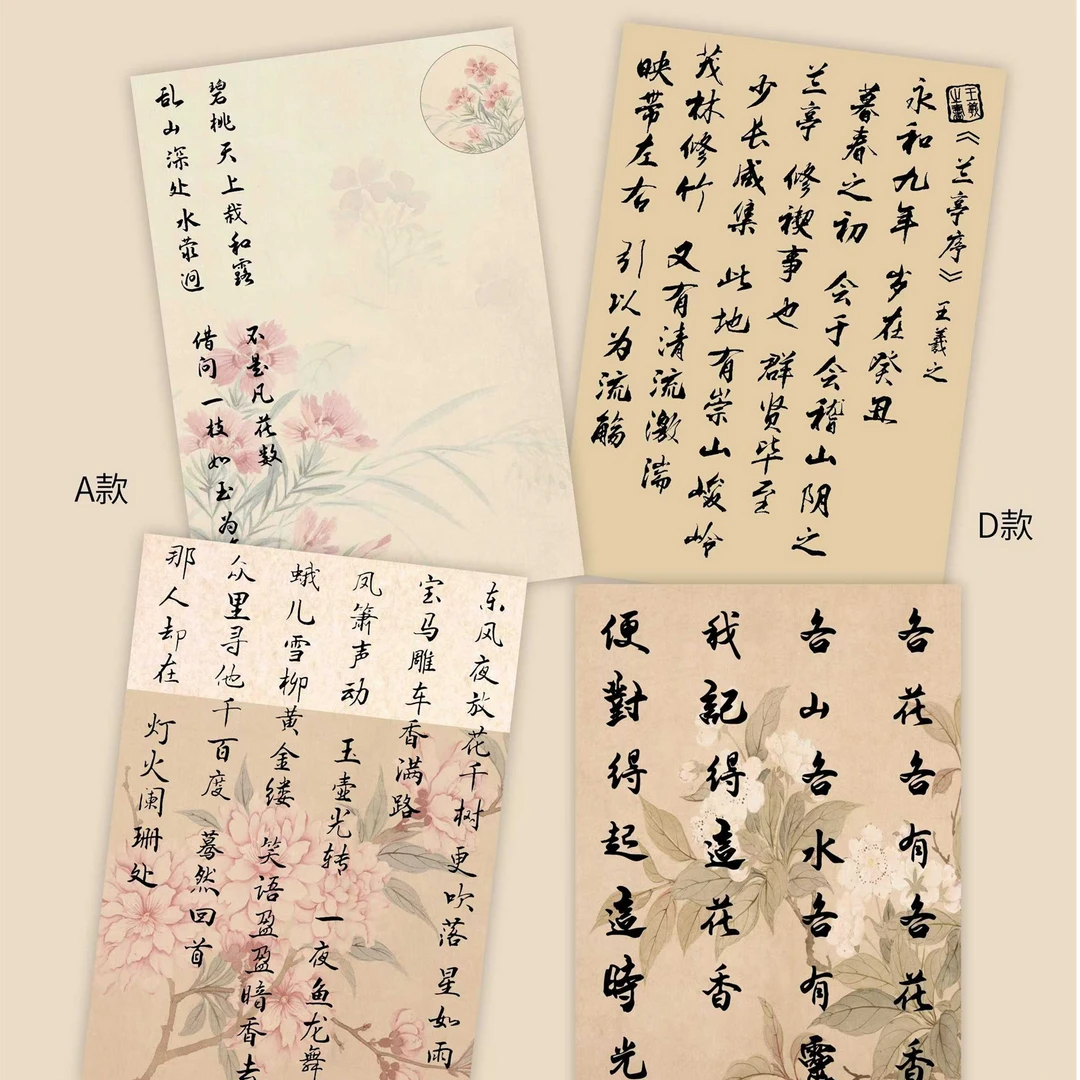 碧桃天上栽和露 不是凡花数
乱山深处水萦洄 借问一枝如玉为
A款
《兰亭序》王羲之
永和九年 岁在癸丑
暮春之初 会于会稽山阴之
兰亭 修禊事也 群贤毕至
少长咸集 此地有崇山峻岭
茂林修竹 又有清流激湍
映带左右 引以为流觞
D款
东风夜放花千树 更吹落 星如雨
宝马雕车香满路
凤箫声动 玉壶光转 一夜鱼龙舞
蛾儿雪柳黄金缕 笑语盈盈暗香去
众里寻他千百度 蓦然回首
那人却在 灯火阑珊处
各花各有各花香
各山各水各有靈
我記得這花香
便對得起這時光